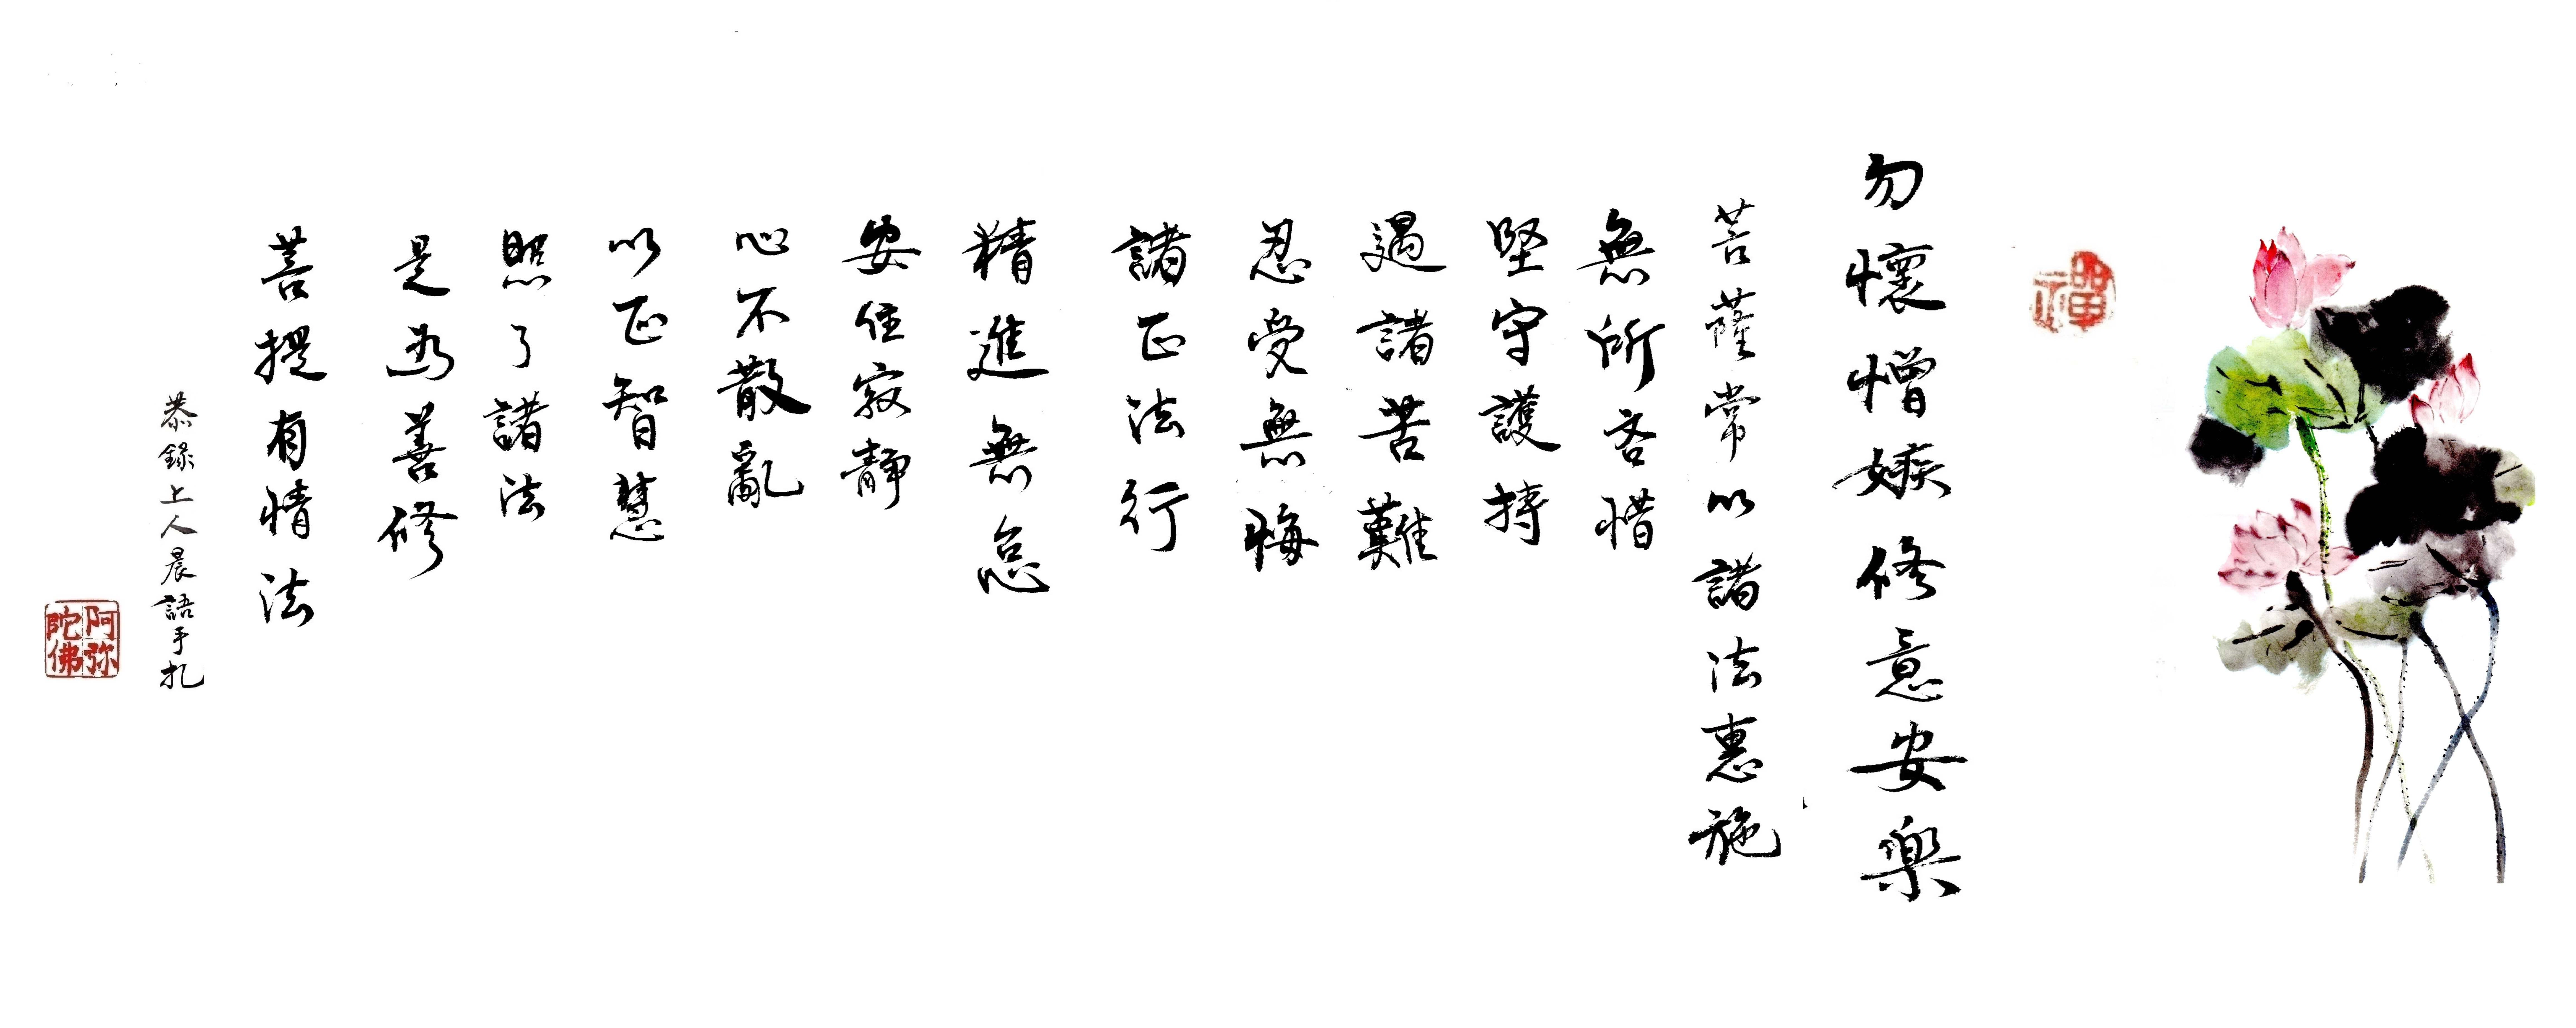 禪
勿懷憎嫉修意安樂
菩薩常以諸法惠施
無所吝惜
堅守護持
遇諸苦難
忍受無悔
諸正法行
精進無怠
安住寂靜
心不散亂
以正智慧
照了諸法
是為善修
菩提有情法
恭錄上人晨語手札
阿弥陀佛